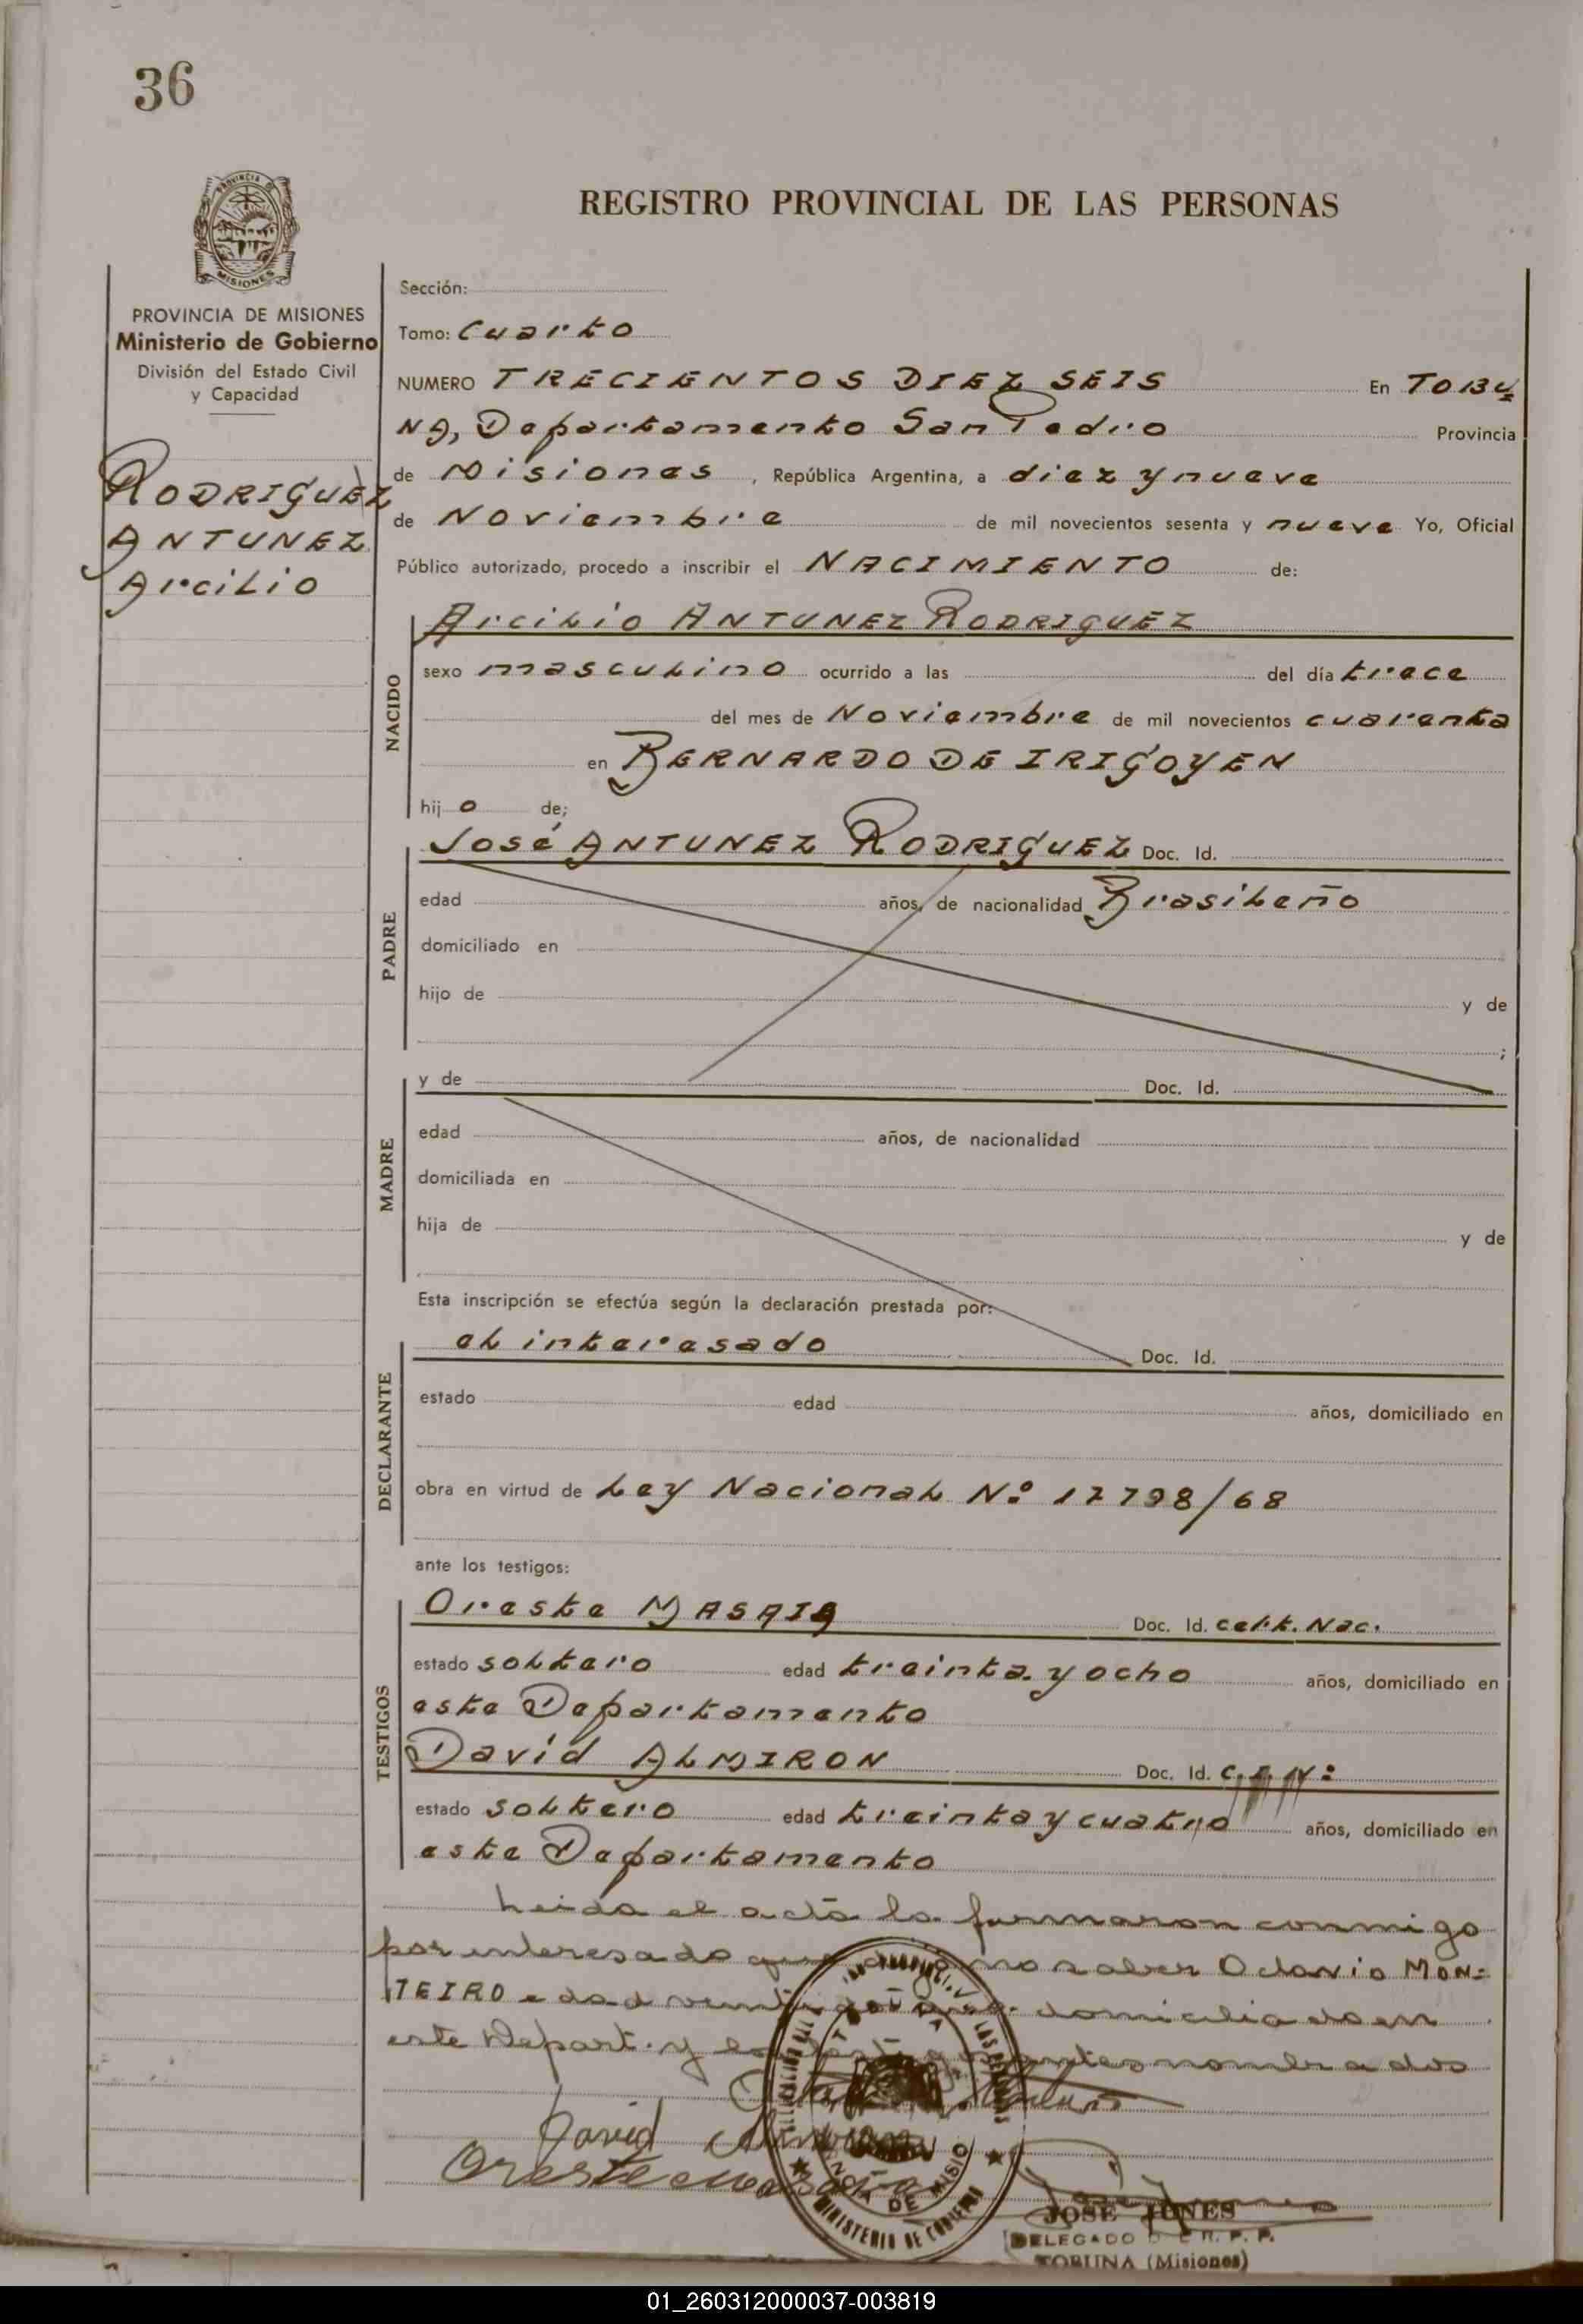 36
PROVINCIA DE
MISIONES
REGISTRO PROVINCIAL DE LAS PERSONAS
PROVINCIA DE MISIONES
Ministerio de Gobierno
División del Estado Civil
y Capacidad
RODRIGUEZ
ANTUNEZ
Arcilio
Sección:
Tomo: Cuarto
NUMERO TRECIENTOS DIEZ SEIS En TOBU=
NA, Departamento San Pedro Provincia
de Misiones, República Argentina, a diez y nueve
de Noviembre de mil novecientos sesenta y nueve Yo, Oficial
Público autorizado, procedo a inscribir el NACIMIENTO de:
NACIDO
Arcilio ANTUNEZ RODRIGUEZ
sexo masculino ocurrido a las del día trece
del mes de Noviembre de mil novecientos cuarenta
en BERNARDO DE IRIGOYEN
hijo de;
PADRE
José ANTUNEZ RODRIGUEZ Doc. Id.
edad años, de nacionalidad Brasileño
domiciliado en
hijo de y de
;
MADRE
y de Doc. Id.
edad años, de nacionalidad
domiciliada en
hija de y de
Esta inscripción se efectúa según la declaración prestada por:
DECLARANTE
el interesado Doc. Id.
estado edad años, domiciliado en
obra en virtud de Ley Nacional Nº 17798/68
ante los testigos:
TESTIGOS
Oreste MASAIA Doc. Id. cert. Nac.
estado soltero edad treinta y ocho años, domiciliado en
este Departamento
David ALMIRON Doc. Id.
estado soltero edad treinta y cuatro años, domiciliado en
este Departamento
Leida el acta la firmaron conmigo
por interesado que dijo no saber Octavio MON=
TEIRO edad domiciliado en
este Depart. y nombrados
David
Oreste
DE MISIO
MINISTERIO DE GOBIERNO
JOSE JONES
DELEGADO R. P. P.
TOBUNA (Misiones)
01_260312000037-003819